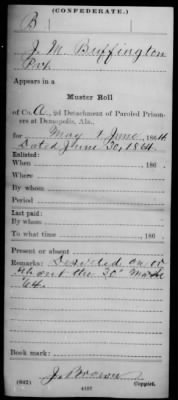 (CONFEDERATE.)
B
J. M. Buffington
Pvt.
Appears in a
Muster Roll
of Co. A, 2d Detachment of Paroled Prison-
ers at Demopolis, Ala.,
for May & June, 1864
Dated June 30, 1864.
Enlisted:
When , 186 .
Where
By whom
Period
Last paid:
By whom
To what time , 186 .
Present or absent
Remarks: Deserted on or
about the 30" March
64.
Book mark:
J. Brown
(642) Copyist.